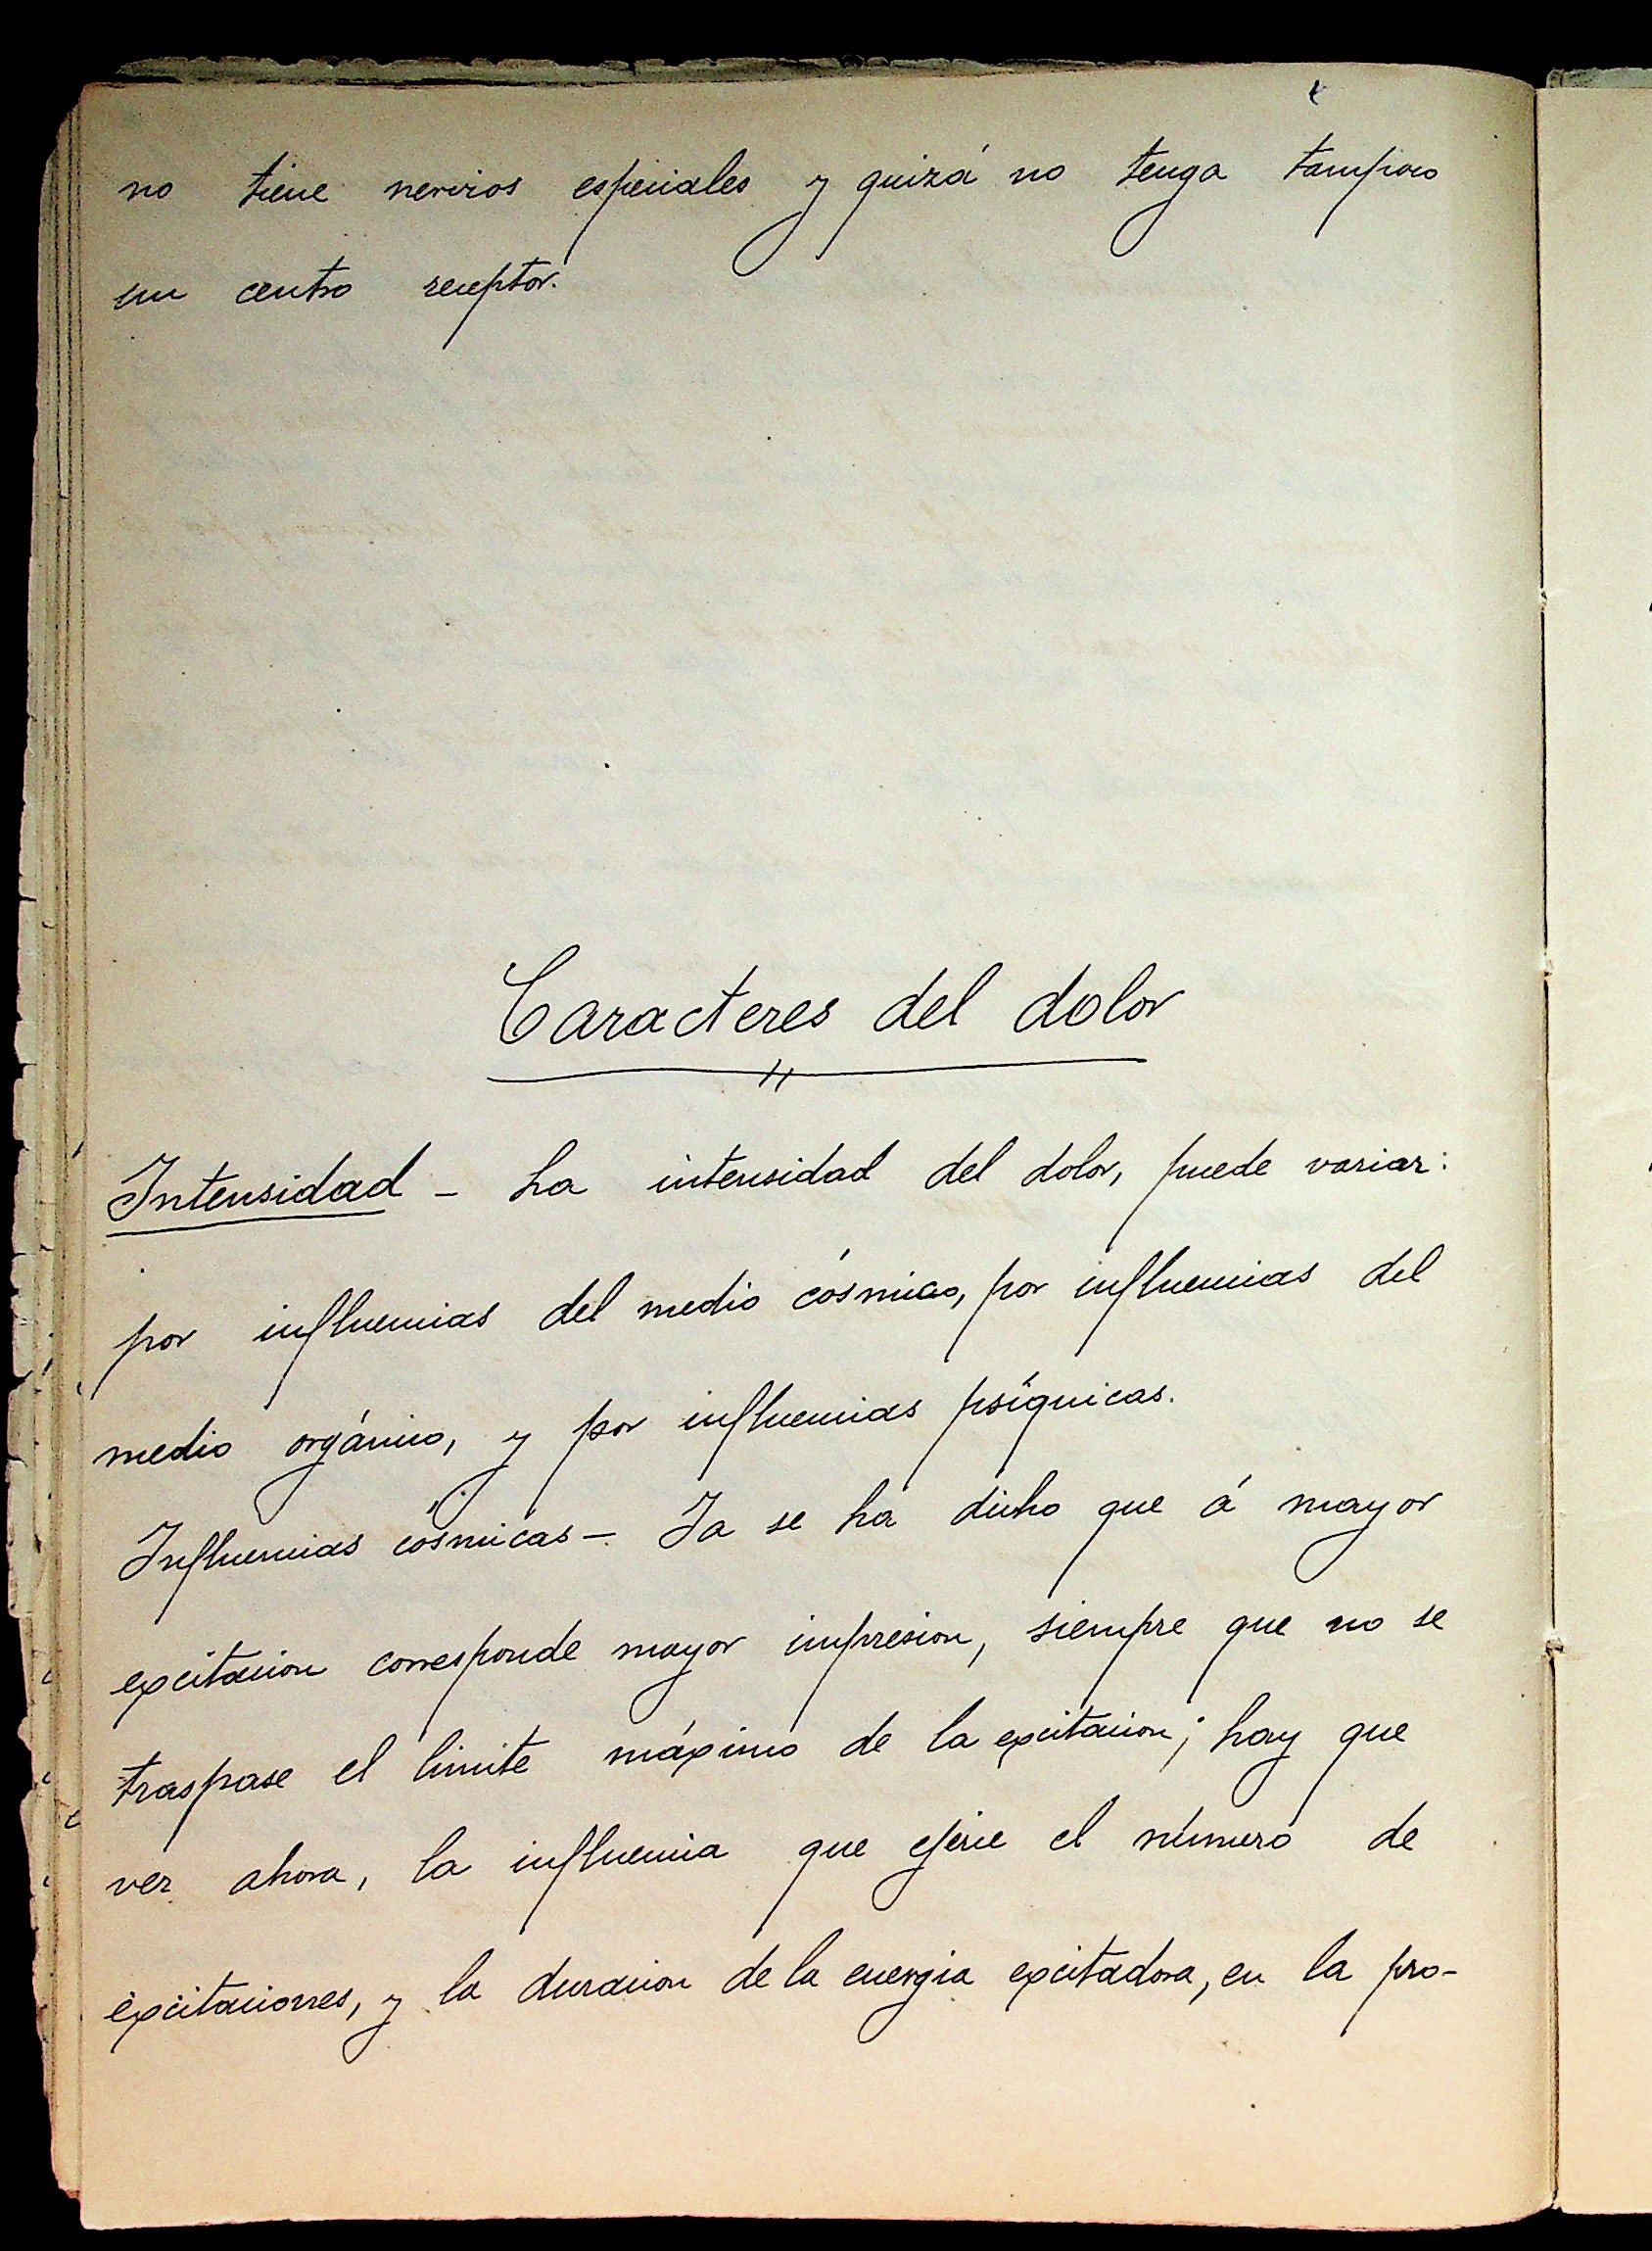 no tiene nervios especiales y quizá no tenga tampoco
un centro receptor.
Caracteres del dolor
Intensidad - La intensidad del dolor, puede variar:
por influencias del medio cósmico, por influencias del
medio orgánico, y por influencias psíquicas.
Influencias cósmicas - Ya se ha dicho que á mayor
excitacion corresponde mayor impresion, siempre que no se
traspase el limite máximo de la excitacion; hay que
ver ahora, la influencia que ejerce el número de
excitaciones, y la duracion de la energia excitadora, en la pro-